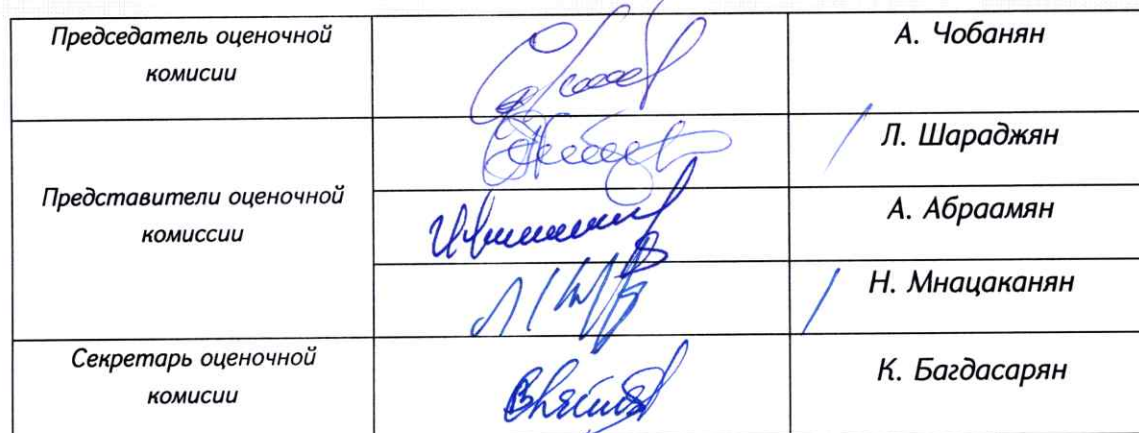 Председатель оценочной
комисии
А. Чобанян
Л. Шараджян
Представители оценочной
комиссии
А. Абраамян
Н. Мнацаканян
Секретарь оценочной
комисии
К. Багдасарян